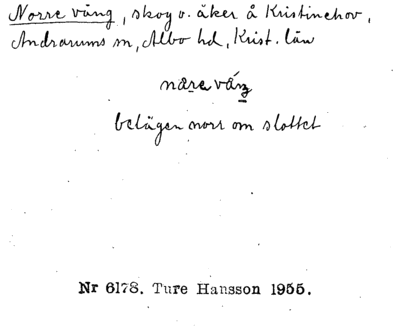 Norre vång, skog o. åker å Kristinehov,
Andrarums sn, Albo hd, Krist. län
nårε våŋ
belägen norr om slottet
Nr 6178. Ture Hansson 1955.